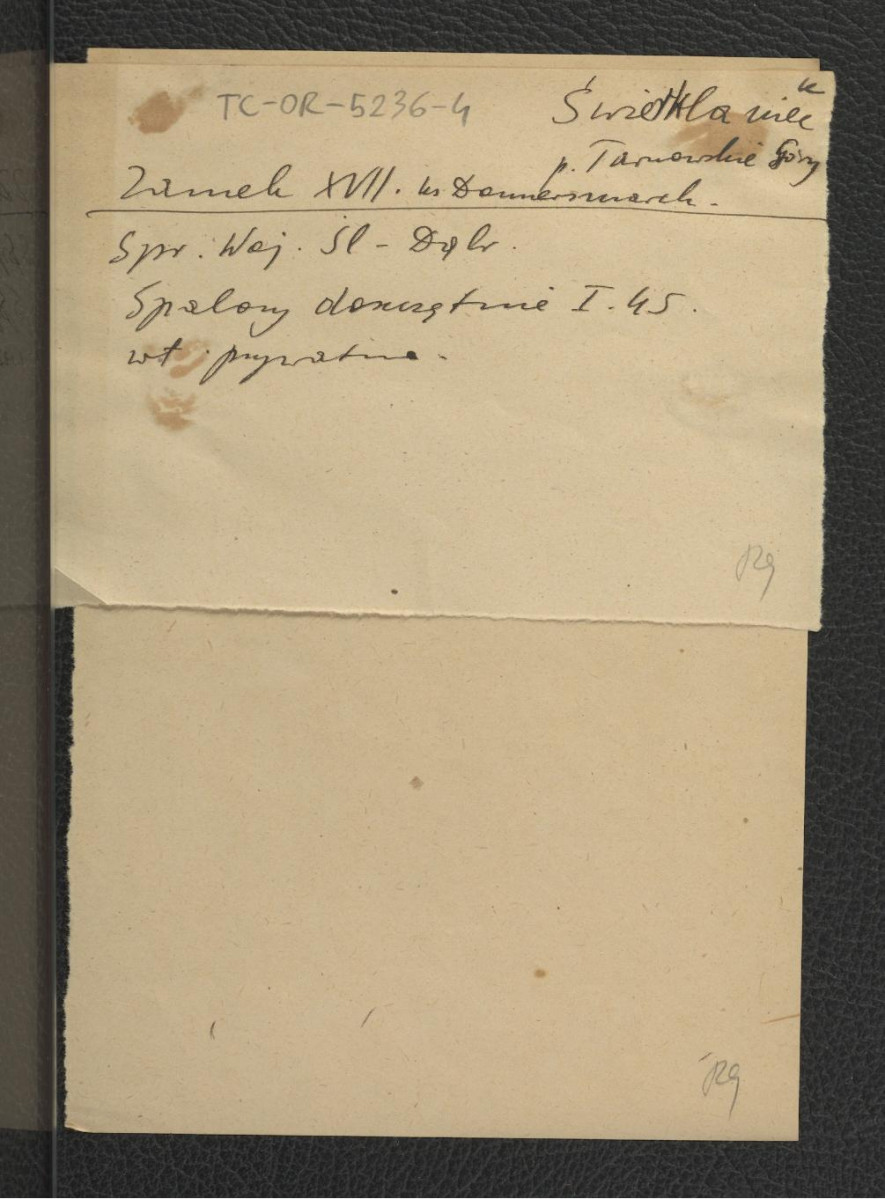 TC-OR-5236-4
Świerklaniec
p. Tarnowskie Góry
Zamek XVII. ks Donnersmarck.
Spr. Woj. Śl - Dąbr.
Spalony doszczętnie I.45.
wł. prywatna.
Rg
Rg